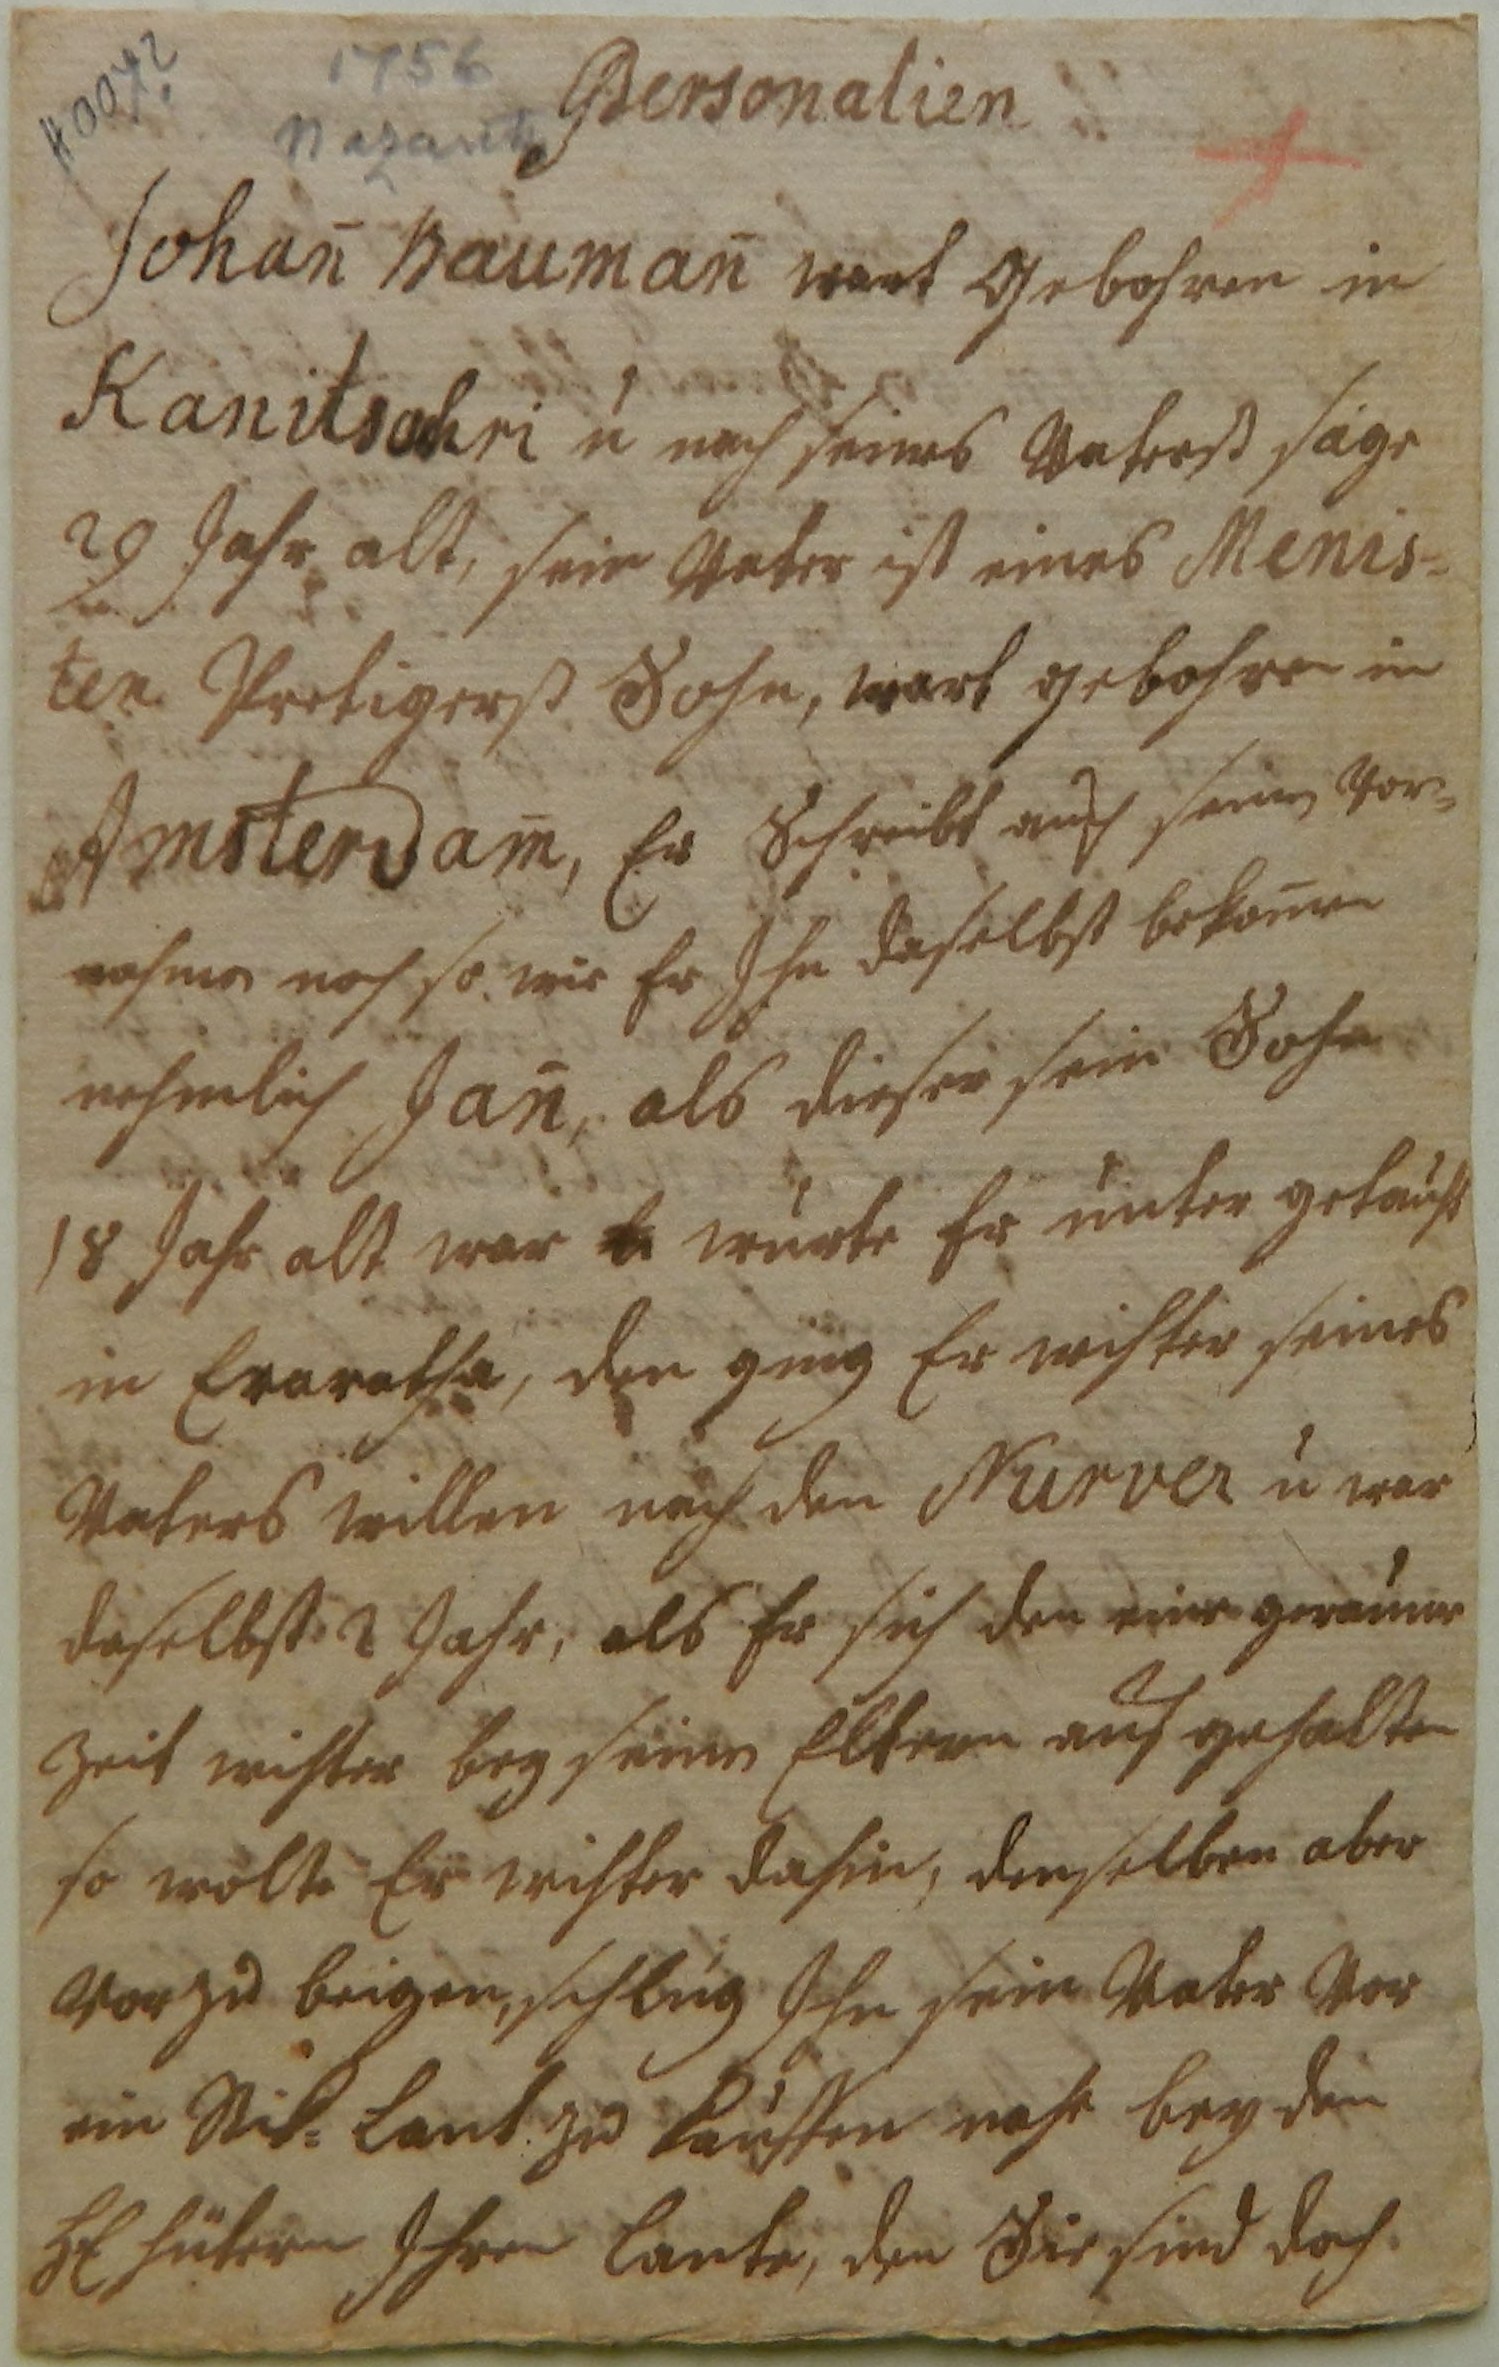 1756
Nazareth
Personalien
Johan̄ Bauman̄ wart Gebohren in
Kanitsochri ŭ nach seines Vaterß sage
29 Jahr alt, sein Vater ist eines Menis-
ten Pretigerß Sohn, wart gebohren in
Amsterdam̄, Er Schreibt auch seinen Vor-
nahmen noch so wie Er Ihn daselbst bekom̄en
nehmlich Jan̄, als dieser sein Sohn
18 Jahr alt war wurte Er unter getauft
in Evaratha, den ging Er wihter seines
Vaters willen nach den Nurver ŭ war
daselbst 2 Jahr, als Er sich den eine geraume
Zeit wihter bey seinen Eltern auf gehalten
so wolte Er wihter dahin, denselben aber
vor zu beigen, schlug Ihn sein Vater Vor
ein Stik- Lant zu kauffen nahe bey den
Ihren Lante, den Sie sind doch